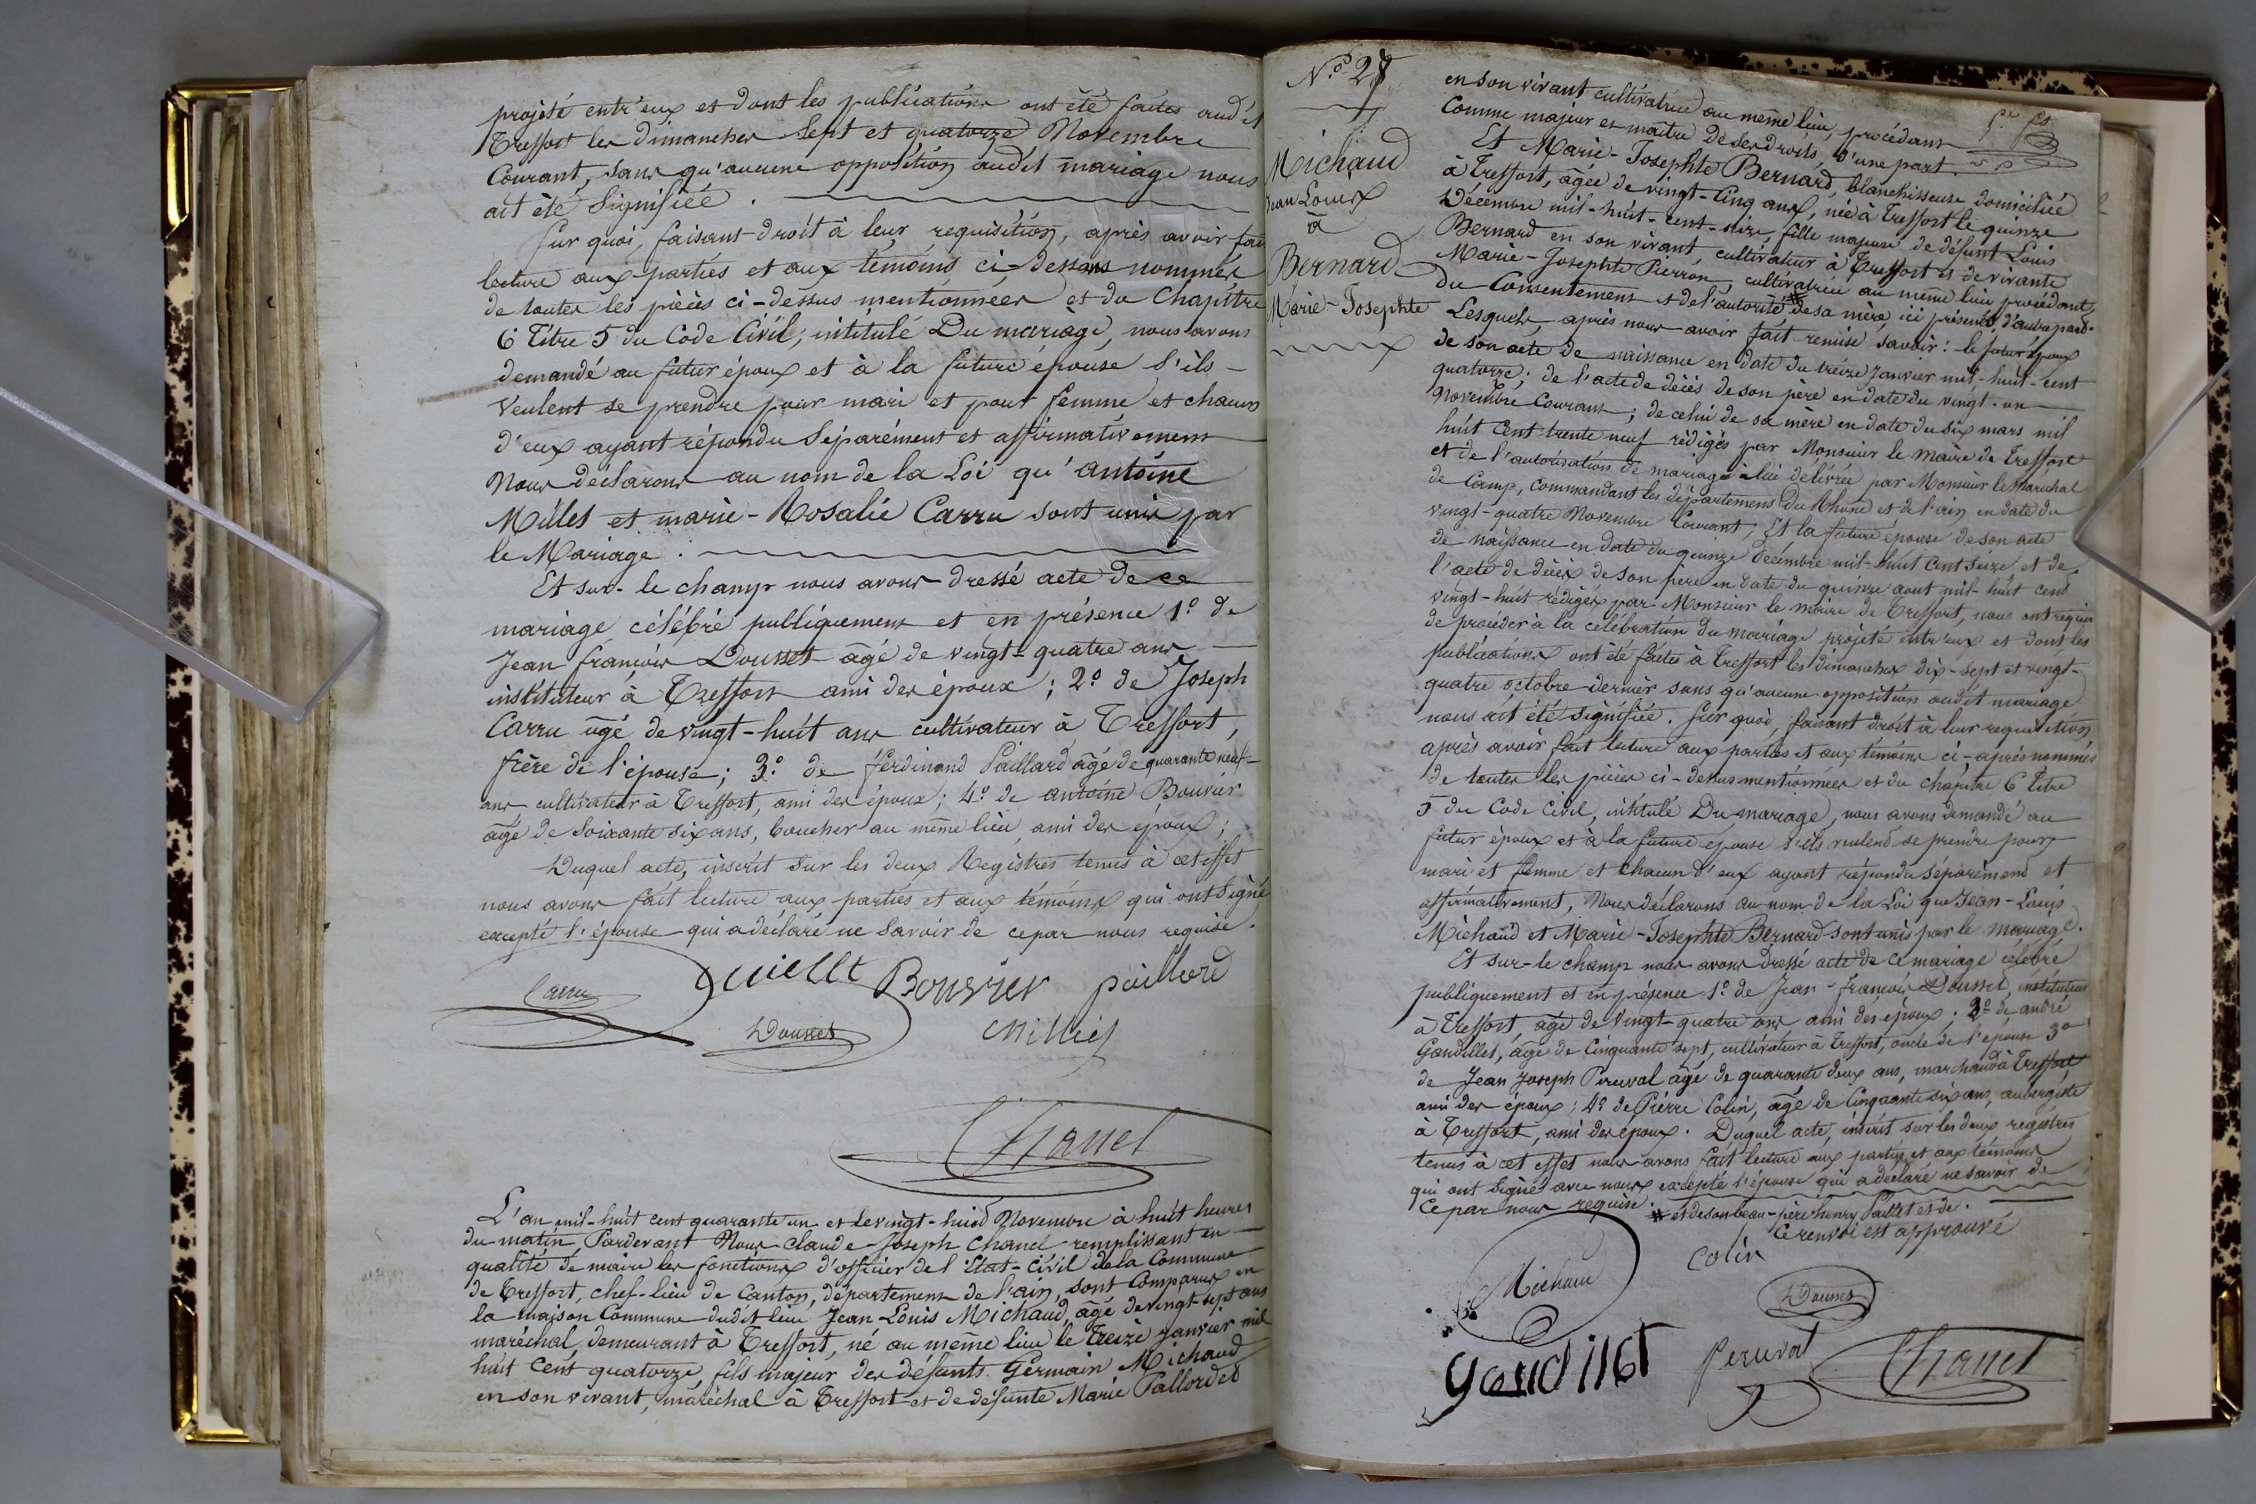 projeté entr'eux et dont les publications ont été faites audit
Treffort les dimanches Sept et quatorze Novembre
Courant, sans qu'aucune opposition audit mariage nous
ait été Signifiée.
Sur quoi, faisant droit à leur requisition, après avoir fait
lecture aux parties et aux témoins ci-dessous nommés
de toutes les pièces ci-dessus mentionnées et du Chapitre
6 Titre 5 du Code Civil, intitulé Du mariage, nous avons
demandé au futur époux et à la future épouse s'ils
Veulent se prendre pour mari et pour femme et chacun
d'eux ayant répondu Séparément et affirmativement
Nous déclarons au nom de la Loi qu'antoine
Millet et marie-Rosalie Carru sont unis par
le Mariage.
Et sur-le champ nous avons dressé acte de ce
mariage célébré publiquement et en présence 1.o de
Jean françois Dousset âgé de vingt-quatre ans
instituteur à Treffort ami des époux; 2.o de Joseph
Carru âgé de vingt-huit ans cultivateur à Treffort,
frère de l'épouse; 3.o de ferdinand Paillard âgé de quarante neuf
ans cultivateur à Treffort, ami des époux; 4.o de antoine Bouvier
âgé de Soixante six ans, boucher au même lieu, ami des époux;
Duquel acte, inscrit sur les deux Registres tenus à cet effet
nous avons fait lecture aux parties et aux témoins qui ont Signé
excepté l'épouse qui a déclaré ne Savoir de ce par nous requise.
Carru
Bouvier
paillard
Dousset
Chanel
L'an mil-huit cent quarante un et le vingt-huit Novembre à huit heures
du matin, Pardevant Nous Claude-Joseph Chanel remplissant en
qualité de maire les fonctions d'officier de l'Etat-civil de la Commune
de Treffort, chef-lieu de Canton, département de l'ain, sont Comparus en
la maison Commune dudit lieu Jean-Louis Michaud, âgé de vingt-sept ans
maréchal, demeurant à Treffort, né au même lieu le Treize Janvier mil
huit Cent quatorze, fils majeur des défunts Germain Michaud
en son vivant, maréchal à Treffort et de défunte Marie Pallordet
N.o 28
Michaud
Jean Louis
à
Bernard
Marie-Josephte
en son vivant cultivatrice au même lieu, procédant
Comme majeur et maître de ses droits, d'une part.
Et Marie-Josephte Bernard, blanchisseuse domiciliée
à Treffort, âgée de vingt-cinq ans, née à Treffort le quinze
Décembre mil-huit-cent-seize, fille majeure de défunt Louis
Bernard en son vivant cultivateur à Treffort et de vivante
Marie-Josephte Pierron, cultivatrice au même lieu procédant
du Consentement et de l'autorité # de sa mère, ici présente, d'autre part.
Lesquels, après nous avoir fait remise savoir: le futur époux
de son acte de naissance en date du treize Janvier mil-huit-cent
quatorze; de l'acte de décès de son père en date du vingt-un
Novembre Courant; de celui de sa mère en date du six mars mil
huit Cent trente neuf rédigés par Monsieur le Maire de Treffort
et de l'autorisation de mariage à lui délivrée par Monsieur le Maréchal
de Camp, Commandant les départemens du Rhône et de l'ain en date du
vingt-quatre Novembre Courant; Et la future épouse de son acte
de Naissance en date du quinze Décembre mil-huit Cent Seize et de
l'acte de décès de son père en date du quinze aout mil-huit cent
vingt-huit rédigés par Monsieur le maire de Treffort, nous ont requis
de procéder à la célébration du mariage projeté entr'eux et dont les
publications ont été faites à Treffort les dimanches dix-sept et vingt-
quatre octobre dernier sans qu'aucune opposition audit mariage
nous ait été Signifiée. Sur quoi, faisant droit à leur requisition
après avoir fait lecture aux parties et aux témoins ci-après nommés
de toutes les pièces ci-dessus mentionnées et du chapitre 6 Titre
5 du Code Civil, intitulé Du mariage, nous avons demandé au
futur époux et à la future épouse s'ils veulent se prendre pour
mari et femme et chacun d'eux ayant répondu séparément et
affirmativement, Nous déclarons au nom de la Loi que Jean-Louis
Michaud et Marie-Josephte Bernard sont unis par le mariage.
Et sur-le champ nous avons dressé acte de ce mariage célébré
publiquement et en présence 1.o de Jean-françois Dousset, instituteur
à Treffort, âgé de Vingt-quatre ans ami des époux; 2.o de andré
Gandillet, âgé de Cinquante sept, cultivateur à Treffort, oncle de l'épouse 3.o
de Jean Joseph Peruval âgé de quarante deux ans, marchand à Treffort
ami des époux; 4.o de Pierre Colin, âgé de Cinquante six ans, aubergiste
à Treffort, ami des époux. Duquel acte, inscrit sur les deux registres
tenus à cet effet nous avons fait lecture aux parties et aux témoins
qui ont Signé avec nous excepté l'épouse qui a déclaré ne savoir de
ce par nous requise.
# et de son beau-père henry Paillet et de.
Ce renvoi est approuvé
Michaud
Colin
Dousset
Gandillet
Peruval
Chanel